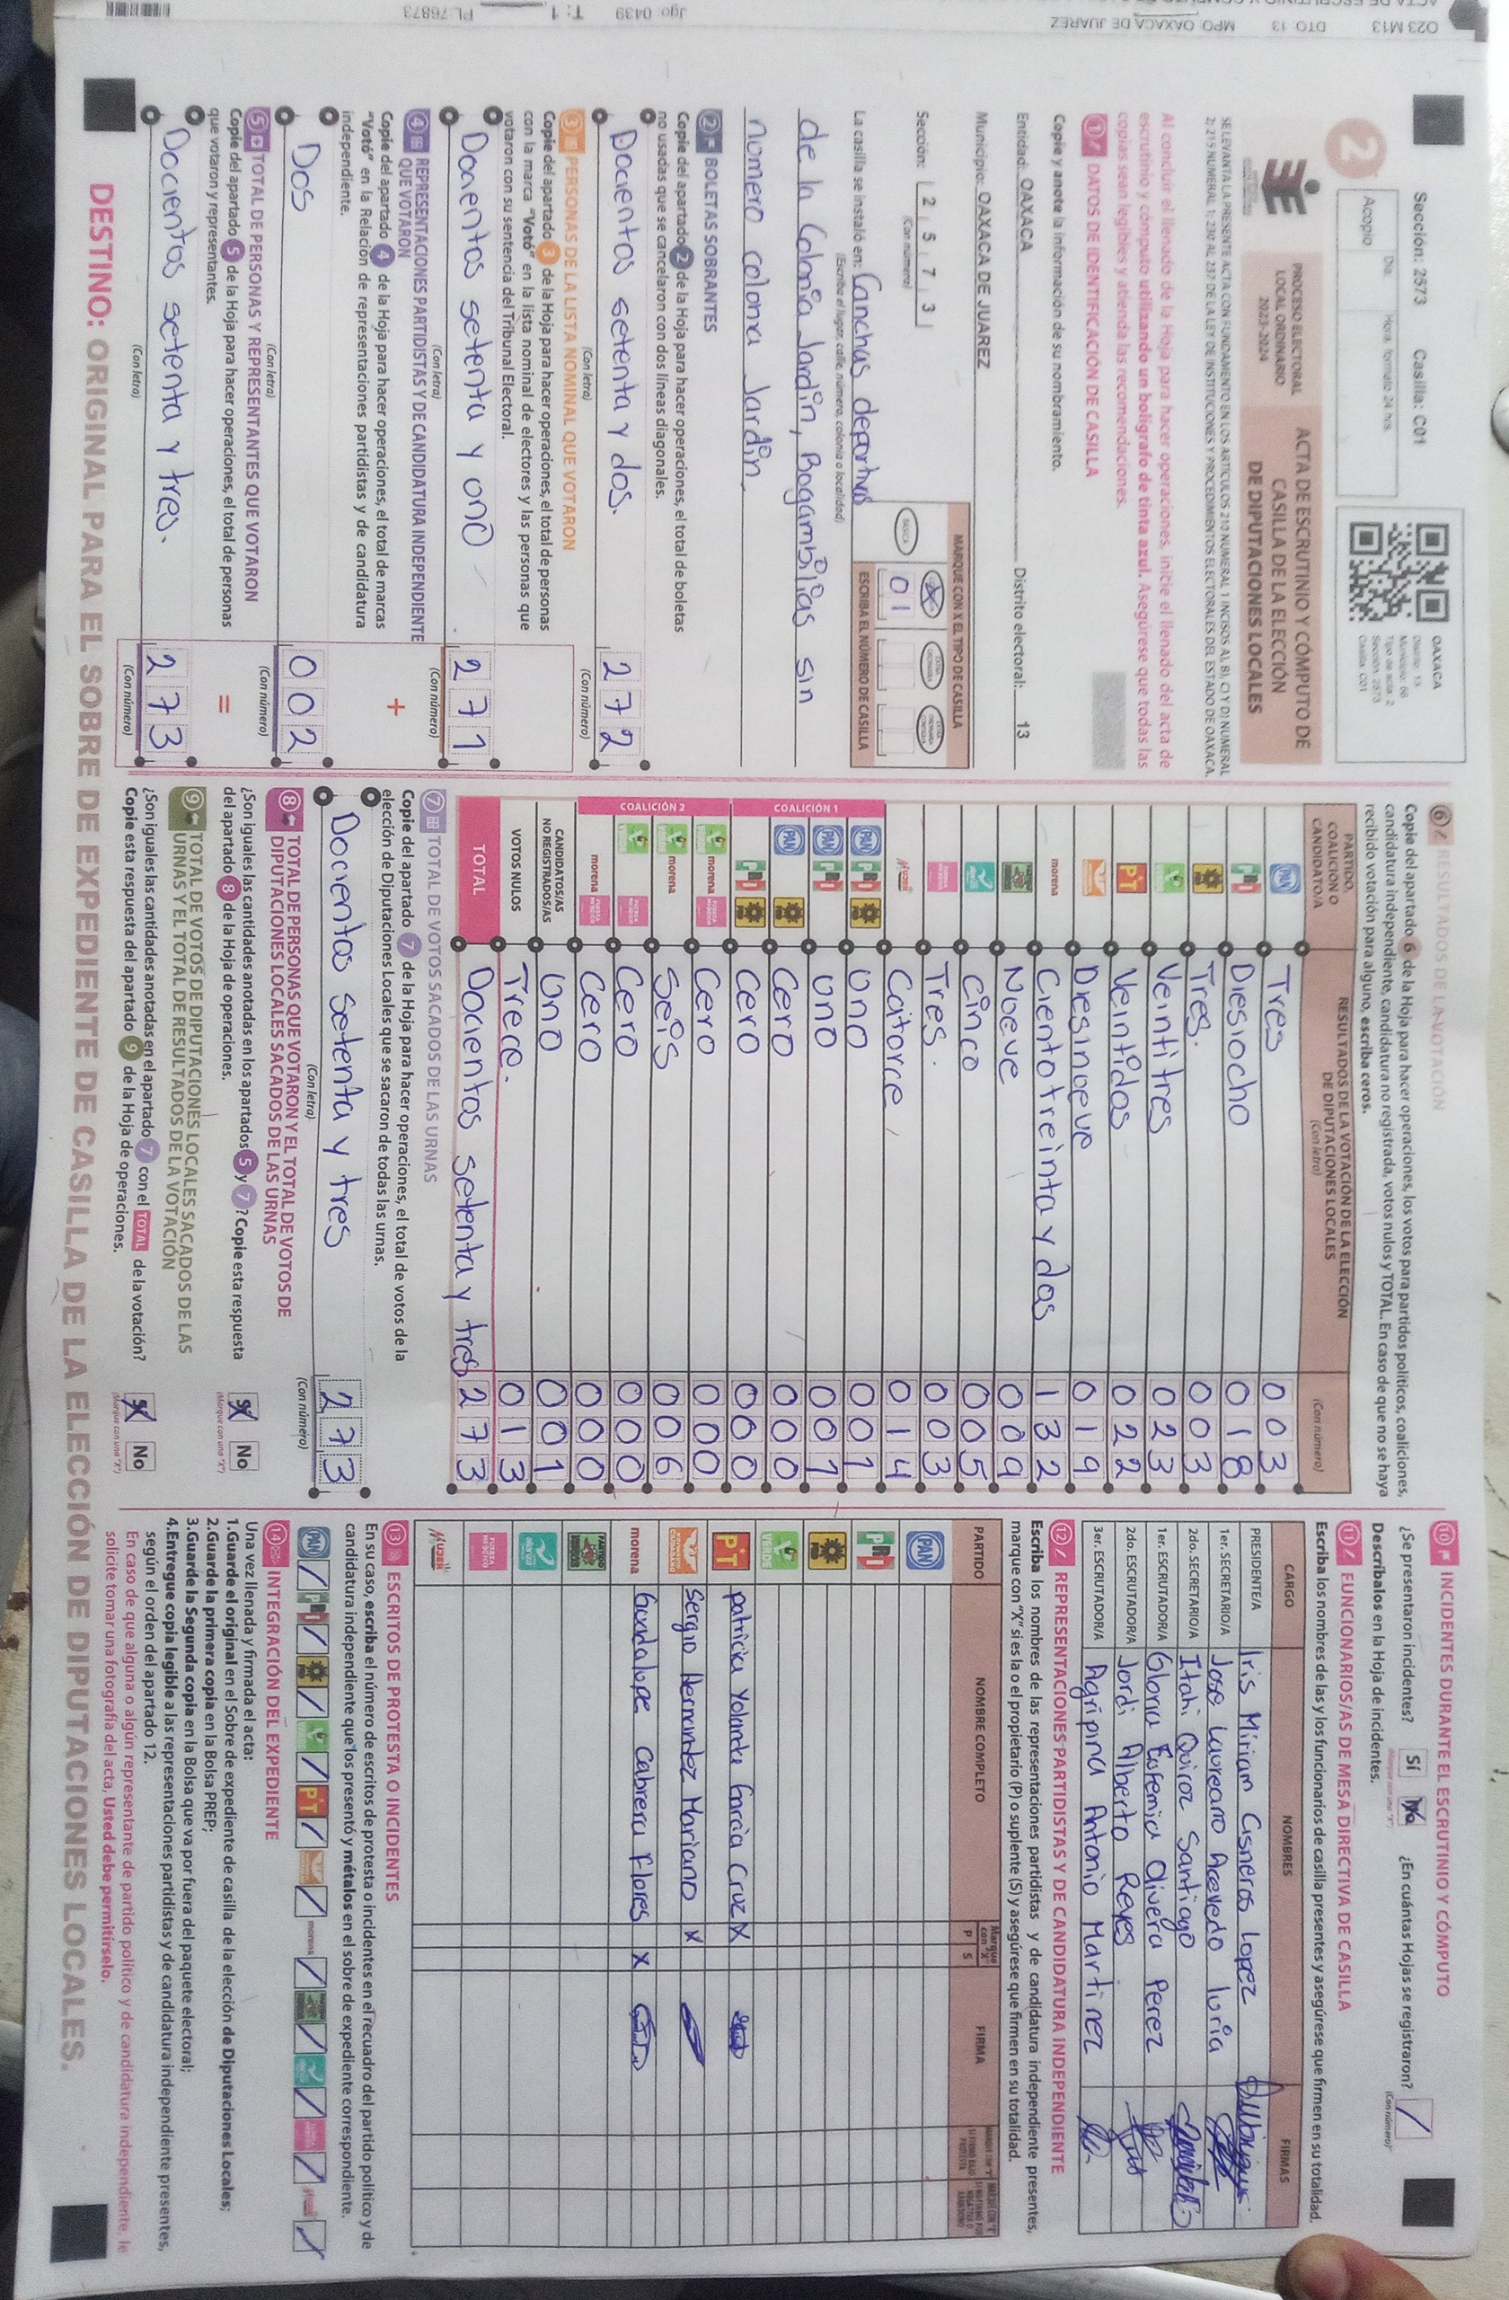 Sección: 2573 Casilla: C01
2
Día Hora, formato 24 hrs.
Acopio
OAXACA
Distrito: 13
Municipio: 68
Tipo de acta: 2
Sección: 2573
Casilla: C01
PROCESO ELECTORAL
LOCAL ORDINARIO
2023-2024
ACTA DE ESCRUTINIO Y CÓMPUTO DE
CASILLA DE LA ELECCIÓN
DE DIPUTACIONES LOCALES
SE LEVANTA LA PRESENTE ACTA CON FUNDAMENTO EN LOS ARTÍCULOS 210 NUMERAL 1 INCISOS A), B), C) Y D) NUMERAL
2; 215 NUMERAL 1; 230 AL 237 DE LA LEY DE INSTITUCIONES Y PROCEDIMIENTOS ELECTORALES DEL ESTADO DE OAXACA.
Al concluir el llenado de la Hoja para hacer operaciones, inicie el llenado del acta de
escrutinio y cómputo utilizando un bolígrafo de tinta azul. Asegúrese que todas las
copias sean legibles y atienda las recomendaciones.
1 DATOS DE IDENTIFICACIÓN DE CASILLA
Copie y anote la información de su nombramiento.
Entidad: OAXACA Distrito electoral: 13
Municipio: OAXACA DE JUAREZ
Sección: 2 5 7 3
(Con número)
MARQUE CON X EL TIPO DE CASILLA
BÁSICA X
ESCRIBA EL NÚMERO DE CASILLA
0 1
La casilla se instaló en: Canchas deportivas
(Escriba el lugar, calle, número, colonia o localidad)
de la Colonia Jardin, Bogambilias sin
numero colonia Jardin.
2 BOLETAS SOBRANTES
Copie del apartado 2 de la Hoja para hacer operaciones, el total de boletas
no usadas que se cancelaron con dos líneas diagonales.
Docientos setenta y dos. 2 7 2
(Con letra) (Con número)
3 PERSONAS DE LA LISTA NOMINAL QUE VOTARON
Copie del apartado 3 de la Hoja para hacer operaciones, el total de personas
con la marca "Votó" en la lista nominal de electores y las personas que
votaron con su sentencia del Tribunal Electoral.
Docientos setenta y uno 2 7 1
(Con letra) (Con número)
4 REPRESENTACIONES PARTIDISTAS Y DE CANDIDATURA INDEPENDIENTE
QUE VOTARON
Copie del apartado 4 de la Hoja para hacer operaciones, el total de marcas
"Votó" en la Relación de representaciones partidistas y de candidatura
independiente.
+
Dos 0 0 2
(Con letra) (Con número)
5 TOTAL DE PERSONAS Y REPRESENTANTES QUE VOTARON
Copie del apartado 5 de la Hoja para hacer operaciones, el total de personas
que votaron y representantes.
=
Docientos setenta y tres. 2 7 3
(Con letra) (Con número)
6 RESULTADOS DE LA VOTACIÓN
Copie del apartado 6 de la Hoja para hacer operaciones, los votos para partidos políticos, coaliciones,
candidatura independiente, candidatura no registrada, votos nulos y TOTAL. En caso de que no se haya
recibido votación para alguno, escriba ceros.
PARTIDO, COALICIÓN O CANDIDATO/A RESULTADOS DE LA VOTACIÓN DE LA ELECCIÓN DE DIPUTACIONES LOCALES (Con letra) (Con número)
PAN Tres 0 0 3
PRI Diesiocho 0 1 8
PRD Tres. 0 0 3
VERDE Veintitres 0 2 3
PT Veintidos 0 2 2
Diesinueve 0 1 9
morena Ciento treinta y dos 1 3 2
Nueve 0 0 9
Cinco 0 0 5
FUERZA MÉXICO Tres. 0 0 3
Mujer Catorce 0 1 4
COALICIÓN 1
PAN PRI PRD Uno 0 0 1
PAN PRI uno 0 0 1
PAN PRD Cero 0 0 0
PRI PRD Cero 0 0 0
COALICIÓN 2
VERDE morena FUERZA MÉXICO Cero 0 0 0
VERDE morena Seis 0 0 6
VERDE FUERZA MÉXICO Cero 0 0 0
morena FUERZA MÉXICO Cero 0 0 0
CANDIDATOS/AS NO REGISTRADOS/AS Uno 0 0 1
VOTOS NULOS Trece. 0 1 3
TOTAL Docientos setenta y tres 2 7 3
7 TOTAL DE VOTOS SACADOS DE LAS URNAS
Copie del apartado 7 de la Hoja para hacer operaciones, el total de votos de la
elección de Diputaciones Locales que se sacaron de todas las urnas.
Docientos setenta y tres 2 7 3
(Con letra) (Con número)
8 TOTAL DE PERSONAS QUE VOTARON Y EL TOTAL DE VOTOS DE
DIPUTACIONES LOCALES SACADOS DE LAS URNAS
¿Son iguales las cantidades anotadas en los apartados 5 y 7? Copie esta respuesta
del apartado 8 de la Hoja de operaciones.
Sí No
(Marque con una "X")
9 TOTAL DE VOTOS DE DIPUTACIONES LOCALES SACADOS DE LAS
URNAS Y EL TOTAL DE RESULTADOS DE LA VOTACIÓN
¿Son iguales las cantidades anotadas en el apartado 7 con el TOTAL de la votación?
Copie esta respuesta del apartado 9 de la Hoja de operaciones.
Sí No
(Marque con una "X")
10 INCIDENTES DURANTE EL ESCRUTINIO Y CÓMPUTO
¿Se presentaron incidentes? Sí No ¿En cuántas Hojas se registraron? /
(Marque con una "X") (Con número)
Descríbalos en la Hoja de incidentes.
11 FUNCIONARIOS/AS DE MESA DIRECTIVA DE CASILLA
Escriba los nombres de las y los funcionarios de casilla presentes y asegúrese que firmen en su totalidad.
CARGO NOMBRES FIRMAS
PRESIDENTE/A Iris Miriam Cisneros Lopez
1er. SECRETARIO/A Jose Laureano Acevedo luria
2do. SECRETARIO/A Itahi Quiroz Santiago
1er. ESCRUTADOR/A Gloria Eufemia Olivera Perez
2do. ESCRUTADOR/A Jordi Alberto Reyes
3er. ESCRUTADOR/A Agripina Antonio Martinez
12 REPRESENTACIONES PARTIDISTAS Y DE CANDIDATURA INDEPENDIENTE
Escriba los nombres de las representaciones partidistas y de candidatura independiente presentes,
marque con "X" si es la o el propietario (P) o suplente (S) y asegúrese que firmen en su totalidad.
PARTIDO NOMBRE COMPLETO Marque con "X" P S FIRMA
PAN
PRI
PRD
VERDE
PT patricia Yolanda Garcia Cruz X
Sergio Hernandez Mariano X
morena Guadalupe Cabrera Flores X
FUERZA MÉXICO
Mujer
13 ESCRITOS DE PROTESTA O INCIDENTES
En su caso, escriba el número de escritos de protesta o incidentes en el recuadro del partido político y de
candidatura independiente que los presentó y métalos en el sobre de expediente correspondiente.
PAN / PRI / PRD / VERDE / PT / / morena / / / / /
14 INTEGRACIÓN DEL EXPEDIENTE
Una vez llenada y firmada el acta:
1.Guarde el original en el Sobre de expediente de casilla de la elección de Diputaciones Locales;
2.Guarde la primera copia en la Bolsa PREP;
3.Guarde la Segunda copia en la Bolsa que va por fuera del paquete electoral;
4.Entregue copia legible a las representaciones partidistas y de candidatura independiente presentes,
según el orden del apartado 12.
En caso de que alguna o algún representante de partido político y de candidatura independiente, le
solicite tomar una fotografía del acta, Usted debe permitírselo.
DESTINO: ORIGINAL PARA EL SOBRE DE EXPEDIENTE DE CASILLA DE LA ELECCIÓN DE DIPUTACIONES LOCALES.
023 M13 DTO 13 MPO. OAXACA DE JUAREZ
Jgo: 0439 T: 1 PL:76873